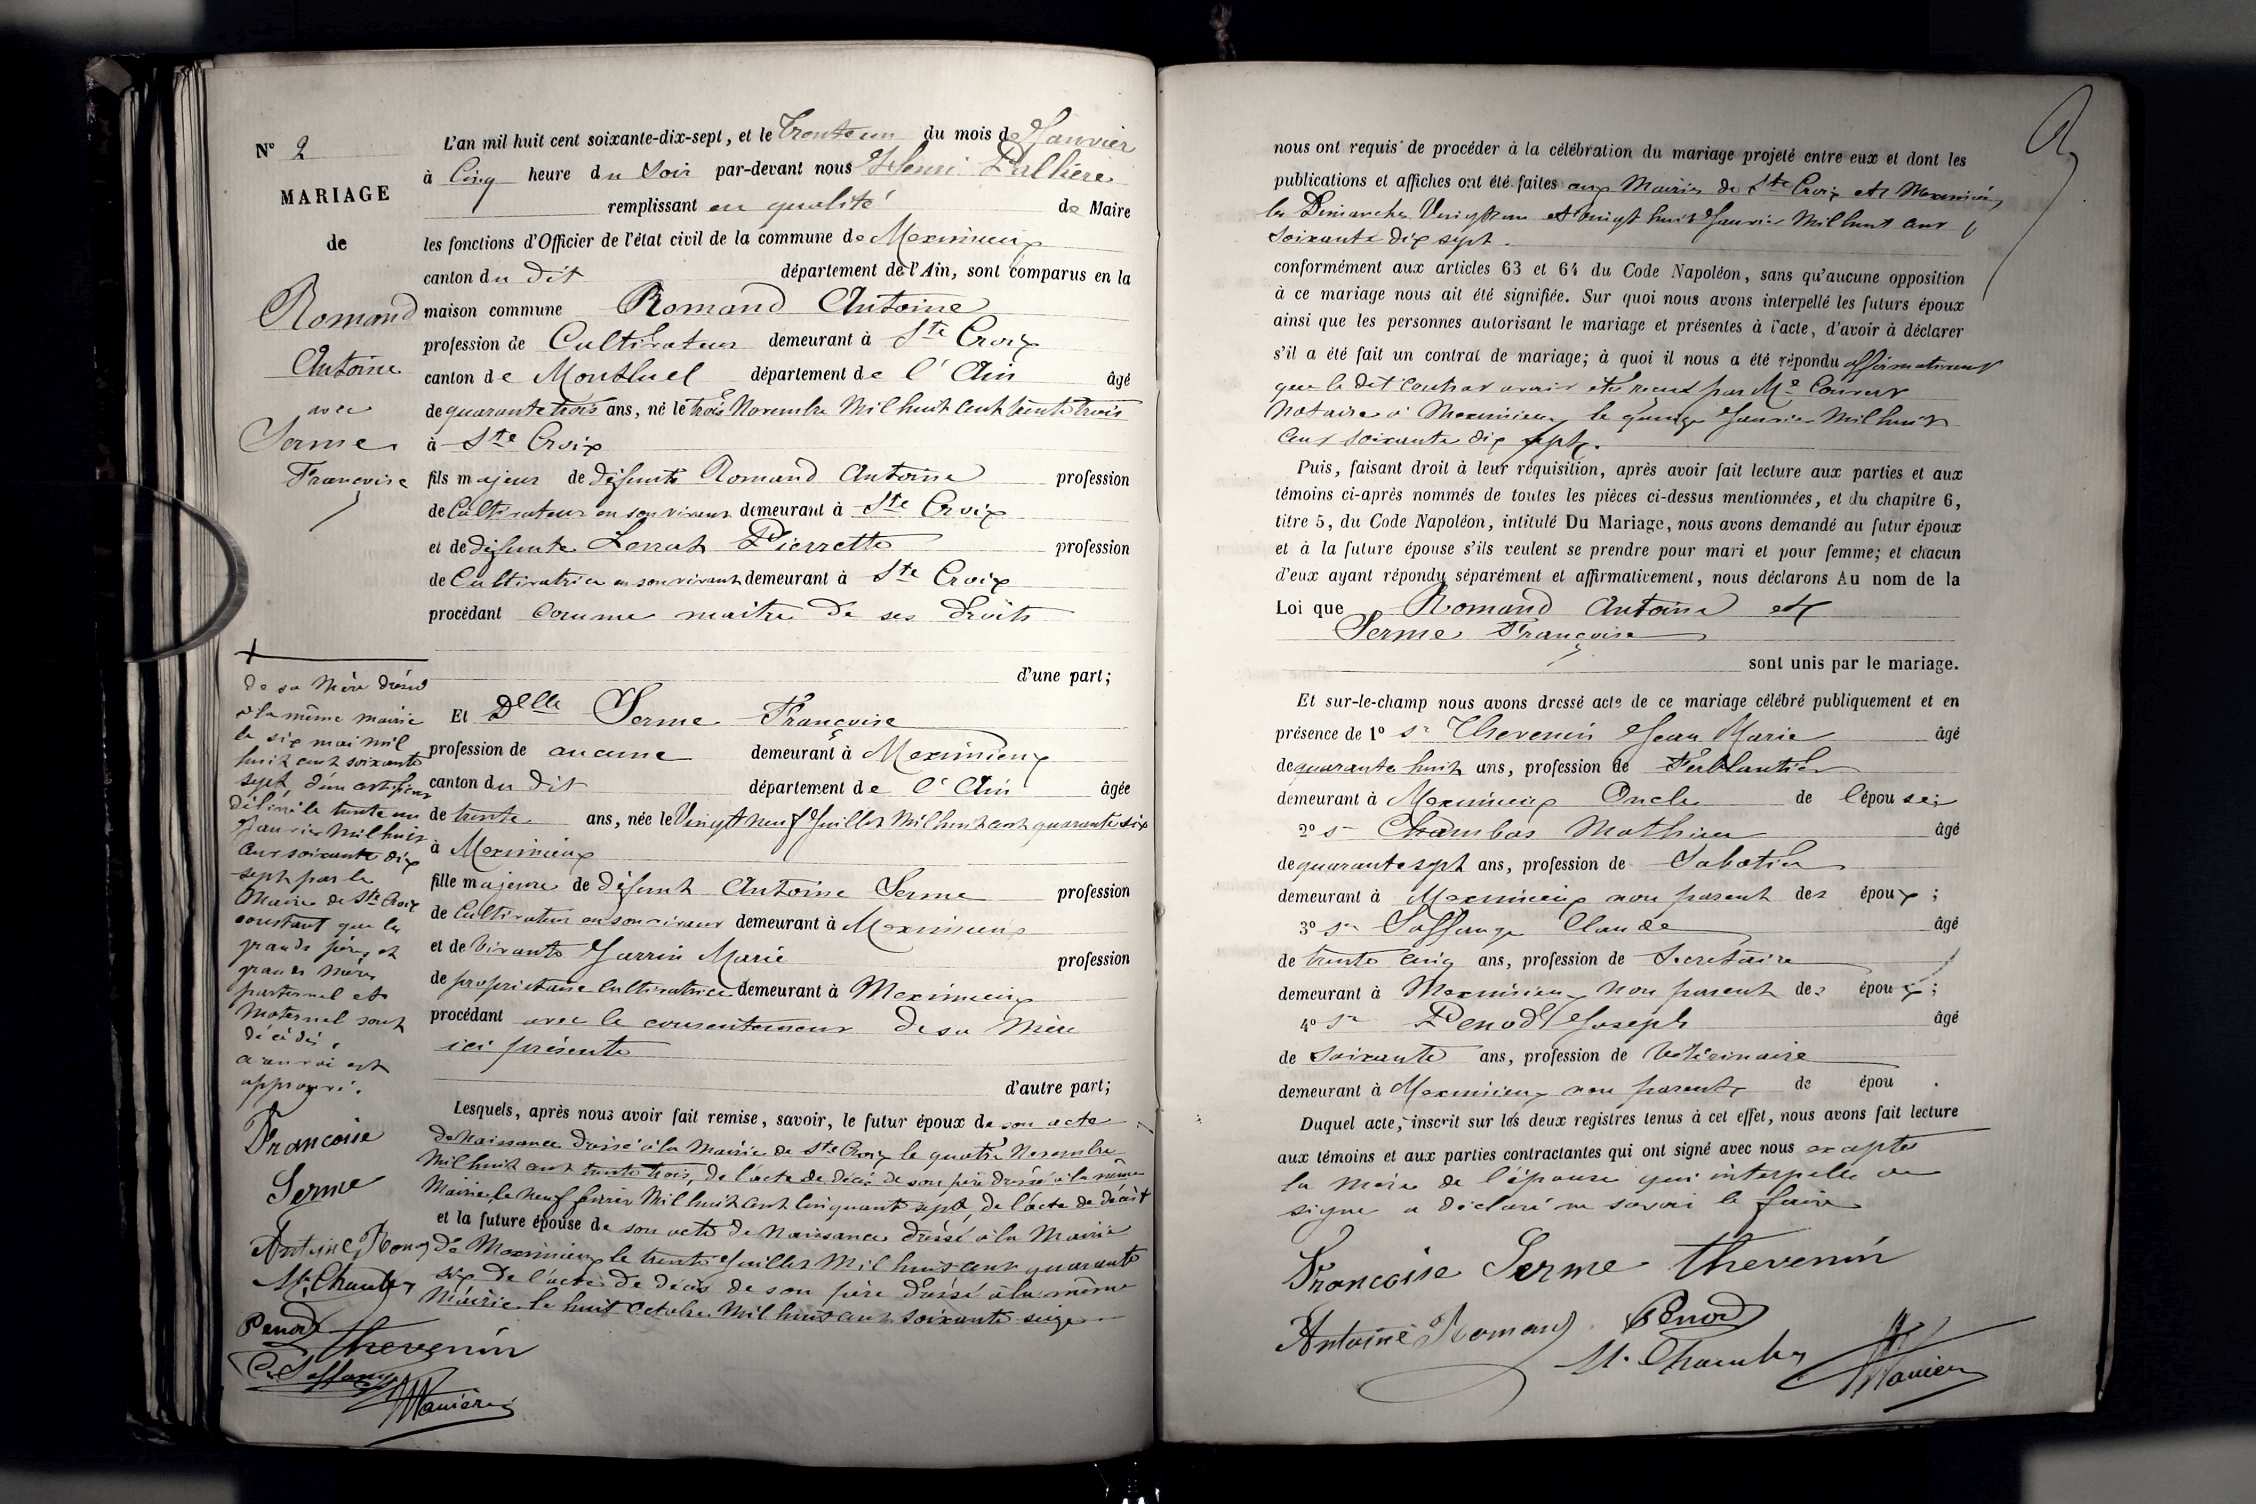 N° 2
MARIAGE
de
Romand
Antoine
avec
Serme
Françoise
L'an mil huit cent soixante-dix-sept, et le Trente un du mois de Janvier
à Cinq heure du Soir par-devant nous Henri
remplissant en qualité de Maire
les fonctions d'Officier de l'état civil de la commune de Meximieux
canton du dit département de l'Ain, sont comparus en la
maison commune Romand Antoine
profession de Cultivateur demeurant à Ste Croix
canton de Montluel département de l'Ain âgé
de quarante trois ans, né le trois Novembre Mil huit cent trente trois
à Ste Croix
fils majeur de défunt Romand Antoine profession
de Cultivateur en son vivant demeurant à Ste Croix
et de défunte Pierrette profession
de Cultivatrice en son vivant demeurant à Ste Croix
procédant comme maitre de ses droits
d'une part;
Et Delle Serme Françoise
profession de aucune demeurant à Meximieux
canton du dit département de l'Ain âgée
de trente ans, née le Vingt neuf Juillet Mil huit cent quarante six
à Meximieux
fille majeure de défunt Antoine Serme profession
de Cultivateur en son vivant demeurant à Meximieux
et de vivante Marie profession
de propriétaire Cultivatrice demeurant à Meximieux
procédant avec le consentement de sa Mère
ici présente
d'autre part;
Lesquels, après nous avoir fait remise, savoir, le futur époux de son acte
de Naissance dressé à la Mairie de Ste Croix le quatre Novembre
Mil huit cent trente trois, de l'acte de décès de son père dressé à la même
Mairie le neuf février Mil huit cent cinquante sept, de l'acte de décès +
et la future épouse de son acte de Naissance dressé à la Mairie
de Meximieux le trente Juillet Mil huit cent quarante
six de l'acte de décès de son père dressé à la même
Mairie le huit octobre Mil huit cent soixante seize
+
de sa Mère dressé
à la même mairie
le six mai mil
huit cent soixante
sept, d'un certificat
délivré le trente un
Janvier Mil huit
cent soixante dix
sept par le
Maire de Ste Croix
constant que les
grands pères et
grandes mères
paternel et
Maternel sont
décédés,
approuvé.
Françoise
Serme
Antoine Roman
M. Chambas
Penod
Thevenin
C. Saffange
nous ont requis de procéder à la célébration du mariage projeté entre eux et dont les
publications et affiches ont été faites aux Mairies de Ste Croix et Meximieux
les Dimanches Vingt un et vingt huit Janvier Mil huit cent
soixante dix sept.
conformément aux articles 63 et 64 du Code Napoléon, sans qu'aucune opposition
à ce mariage nous ait été signifiée. Sur quoi nous avons interpellé les futurs époux
ainsi que les personnes autorisant le mariage et présentes à l'acte, d'avoir à déclarer
s'il a été fait un contrat de mariage; à quoi il nous a été répondu affirmativement
que le dit Contrat avait été reçu par Me Convert
Notaire à Meximieux le quinze Janvier Mil huit
cent soixante dix sept.
Puis, faisant droit à leur réquisition, après avoir fait lecture aux parties et aux
témoins ci-après nommés de toutes les pièces ci-dessus mentionnées, et du chapitre 6,
titre 5, du Code Napoléon, intitulé Du Mariage, nous avons demandé au futur époux
et à la future épouse s'ils veulent se prendre pour mari et pour femme; et chacun
d'eux ayant répondu séparément et affirmativement, nous déclarons Au nom de la
Loi que Romand Antoine et
Serme Françoise
sont unis par le mariage.
Et sur-le-champ nous avons dressé acte de ce mariage célébré publiquement et en
présence de 1° Sr Thevenin Jean Marie âgé
de quarante huit ans, profession de Ferblantier
demeurant à Meximieux Oncle de l'épouse;
2° Sr Chambas Mathieu âgé
de quarante sept ans, profession de Sabotier
demeurant à Meximieux non parent des époux;
3° Sr Saffange Claude âgé
de trente cinq ans, profession de Secrétaire
demeurant à Meximieux Non parent des époux;
4° Sr Penod Joseph âgé
de soixante ans, profession de Vétérinaire
demeurant à Meximieux non parent de épou.
Duquel acte, inscrit sur les deux registres tenus à cet effet, nous avons fait lecture
aux témoins et aux parties contractantes qui ont signé avec nous excepté
la mère de l'épouse qui interpellée de
signer a déclaré ne savoir le faire
Françoise Serme Thevenin
Antoine Roman Penod
M. Chambas